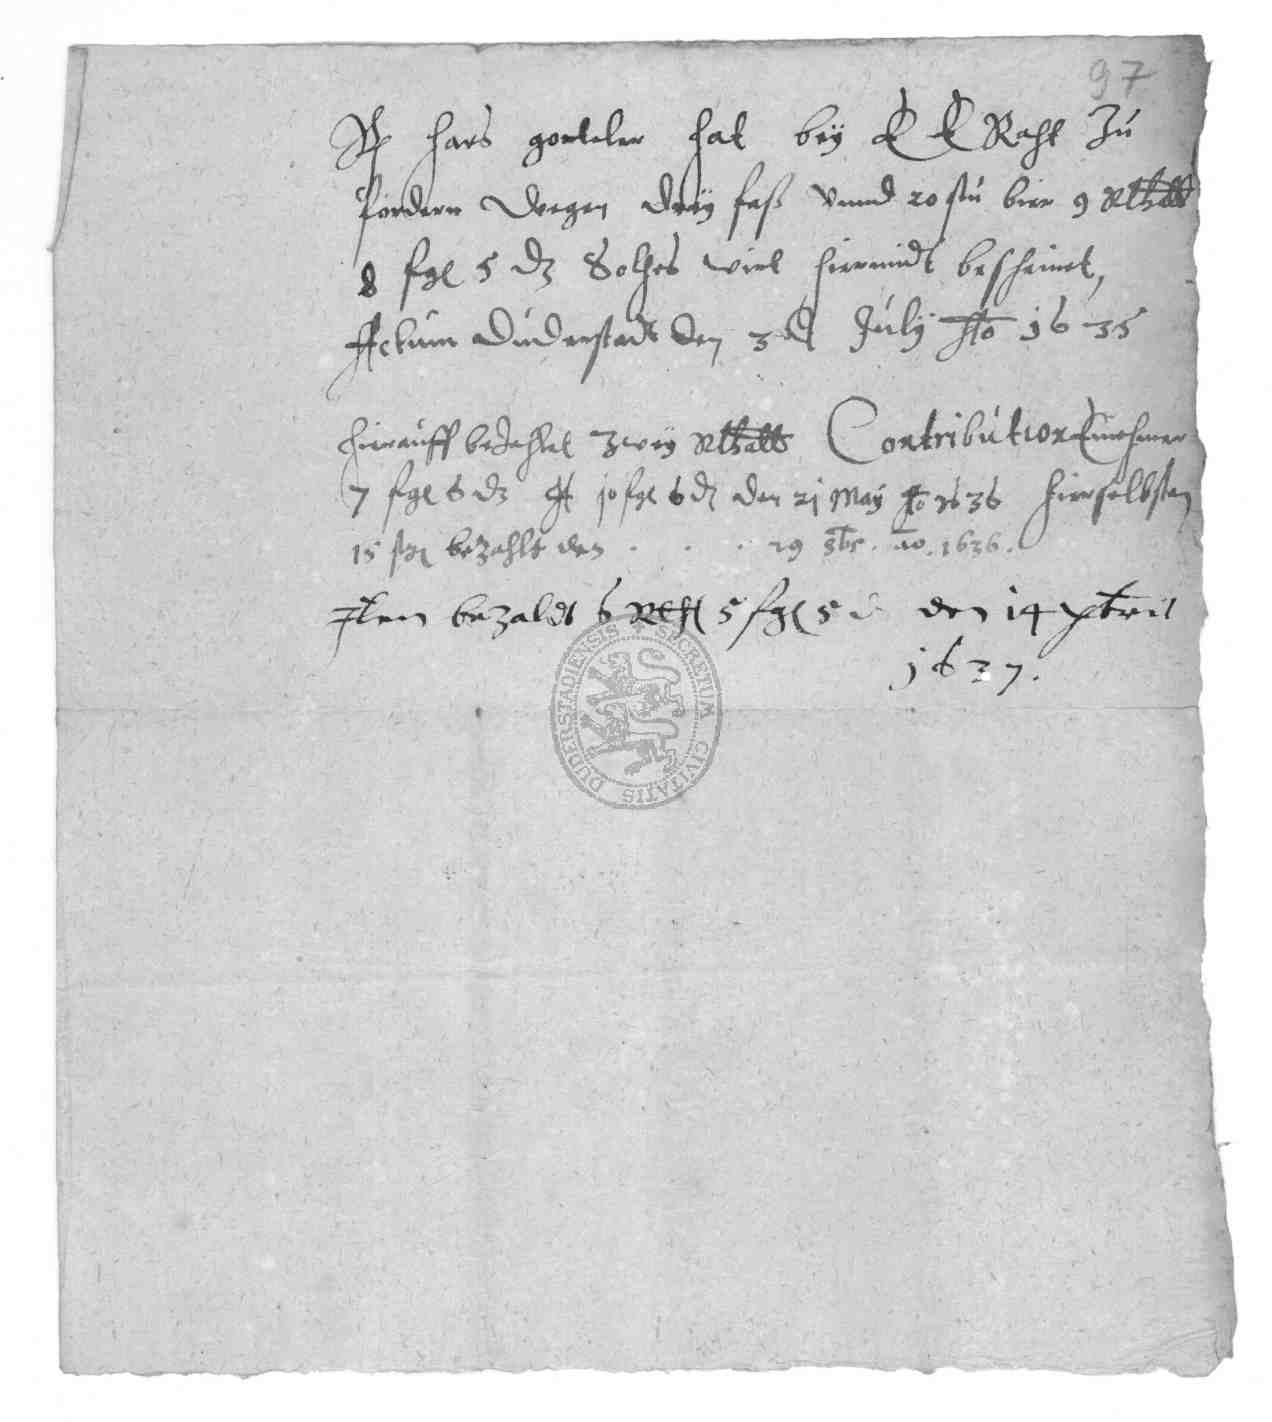 97
hans gorteler hat beÿ E E Raht Zu
fordern wegen dreÿ faß vnnd 20 stü bier 9 Rthall
8 fgl 5 dℨ Solches wirt hiermidt bescheinet,
Actum Duderstadt den 3 July Ao 1635
hierauff bezahlet Zweÿ Rthall Contribution Einehmer
7 fgl 6 dℨ 10 fgl 6 d den 21 Maÿ Ao 1636 hierselbsten
15 fgl bezahlt den . . . 29 ao. 1636.
Item bezaldt 6 Rthl 5 fgl 5 d den 14 April
1637.
SECRETUM CIVITATIS DUDERSTADIENSIS